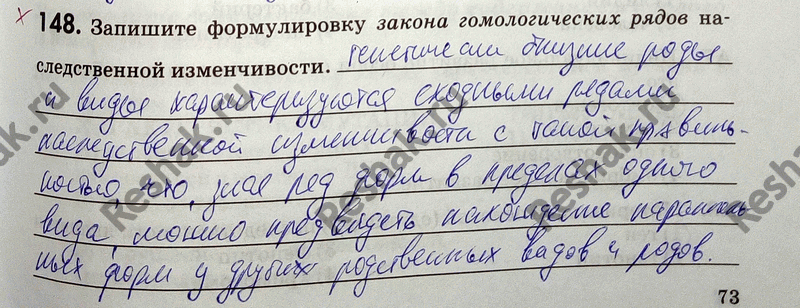 148. Запишите формулировку закона гомологических рядов на-
следственной изменчивости. Генетически близкие роды
и виды характеризуются сходными рядами
наследственной изменчивости с такой правиль-
ностью, что, зная ряд форм в пределах одного
вида, можно предвидеть нахождение параллель
ных форм у других родственных видов и родов.
73
Reshak.ru
Reshak.ru
Reshak.ru
Reshak.ru